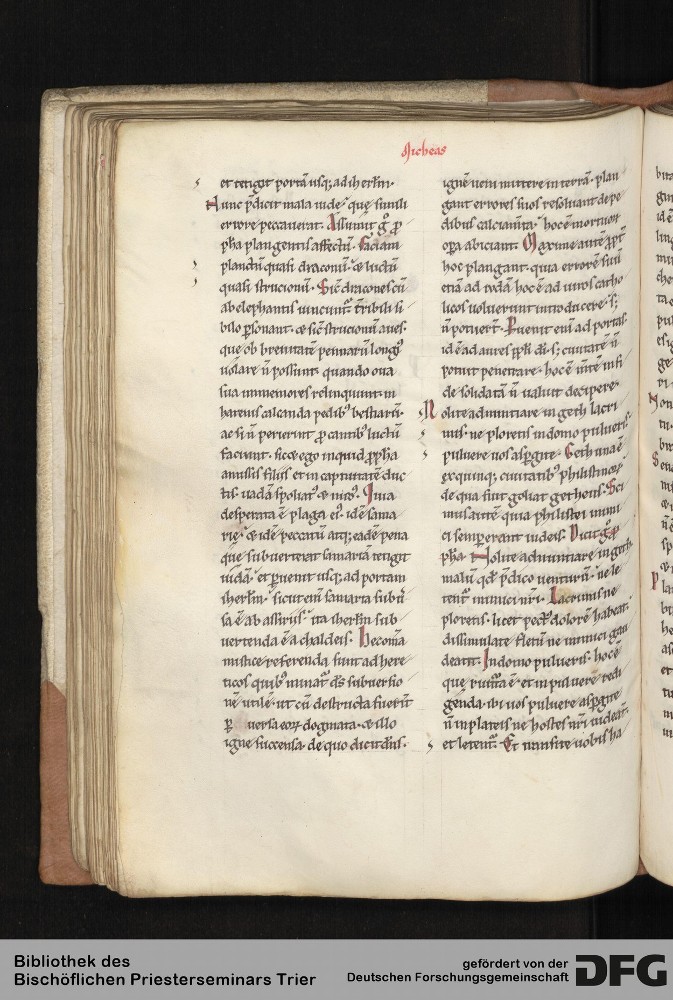 Micheas
et tetigit portā usq; ad iherlm̄.
Nunc p̄dicit mala iudę. quę simili
errore peccauerat. Assumit g̊ ꝓ
pħa plangentis affectū. Faciam
planctū quasi draconū. & luctū
quasi strucionū. Sic̄ dracones cū
ab elephantis uincunt᷑. t̄ribili si
bilo ꝑsonant. & sic̄ strucionū aues.
que ob breuitatē pennarū longi᷒
uolare n̄ possunt. quando oua
sua inmemores relinquunt in
harenis calcanda pedib᷒ bestiarū.
ac si n̄ perierint ꝓ cantib᷒ luctū
faciunt. sic & ego inquid ꝓpħa
amissis filiis et in captiuitatē duc
tis. uadā spoliat᷒ & nud᷒. Quia
desperata ē plaga ei᷒. idē sama
rię. & idē peccatū atq; eadē pena
quę subuerterat samariā tetigit
iudā. et ꝑuenit usq; ad portam
iherlm̄. sicut enī samaria subū
sa ē ab assiriis. ita iherlm̄ sub
uertenda ē a chaldeis. Hec om̄a
mistice referenda sunt ad here
ticos quib᷒ minat᷑ d̄s subuersio
nē utilē. ut cū destructa fuerūt
ꝑ uersa eoꝝ dogmata. & illo
igne succensa. de quo dicit dn̄s.
ignē ueni mittere in terrā. plan
gant errores suos resoluant de pe
dibus calciam̄ta. hoc ē mortuor̄
opa abiciant. Maxime autē ꝓpt̄
hoc plangant. quia errorē suū
etiā ad iudā hoc ē ad uiros catho
licos uoluerunt introducere. s;
n̄ potuer̄t. Puenit enī ad portas.
id ē ad aures pp̄li di. s; ciuitatē n̄
potuit penetrare. hoc ē m̄tē in fi
de solidatā n̄ ualuit decipere.
Nolite adnuntiare in geth lacri
mis. ne ploretis in domo pulueris.
puluere uos aspgite. Geth una ē
ex quinq; ciuitatib᷒ philistinor̄
de qua fuit goliat getheus. Sci
mus autē quia philistei inimi
ci semper erant iudeis. Dicit g̊ ꝓ
pħa. Nolite adnuntiare in geth
malū qd̄ p̄dico uenturū. ne le
tent᷑ inimici nr̄i. Lacrimis ne
ploretis. licet pect᷒ dolorē habeat.
dissimulate fletū ne inimici gau
deant. In domo pulueris. hoc ē
quę ruitura ē. et in puluerē redi
genda. ibi uos puluere aspgite
n̄ in plateis ne hostes nr̄i uideant.
et letent᷑. Et transite uobis ha
Bibliothek des
Bischöflichen Priesterseminars Trier
gefördert von der
Deutschen Forschungsgemeinschaft
DFG